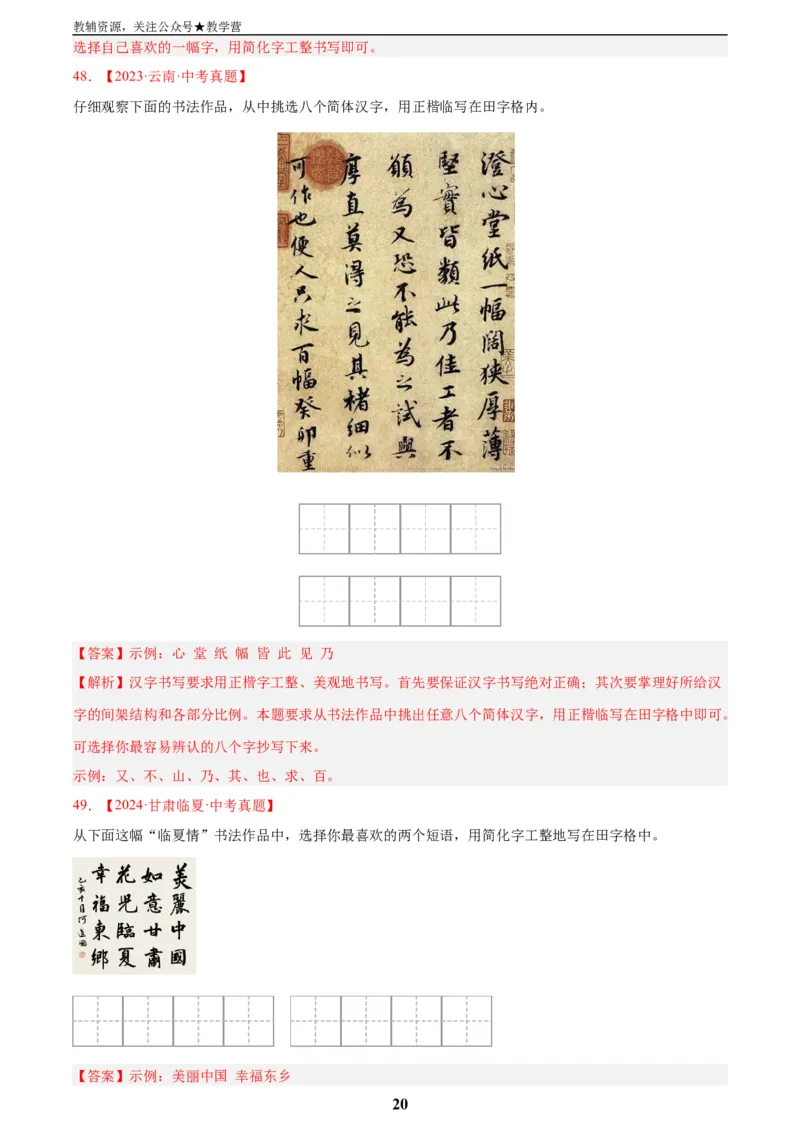 教辅资源，关注公众号★教学营
选择自己喜欢的一幅字，用简化字工整书写即可。
48．【2023·云南·中考真题】
仔细观察下面的书法作品，从中挑选八个简体汉字，用正楷临写在田字格内。
澄心堂纸一幅闊狹厚薄
堅實皆類此乃佳工者不
願為又恐不能為之試與
厚直莫得之見其楮細似
可作也便人只求百幅癸卯重
【答案】示例：心 堂 纸 幅 皆 此 见 乃
【解析】汉字书写要求用正楷字工整、美观地书写。首先要保证汉字书写绝对正确；其次要掌理好所给汉
字的间架结构和各部分比例。本题要求从书法作品中挑出任意八个简体汉字，用正楷临写在田字格中即可。
可选择你最容易辨认的八个字抄写下来。
示例：又、不、山、乃、其、也、求、百。
49．【2024·甘肃临夏·中考真题】
从下面这幅“临夏情”书法作品中，选择你最喜欢的两个短语，用简化字工整地写在田字格中。
美麗中國
如意甘肅
花兒臨夏
幸福東鄉
己亥十月何
【答案】示例：美丽中国 幸福东乡
20